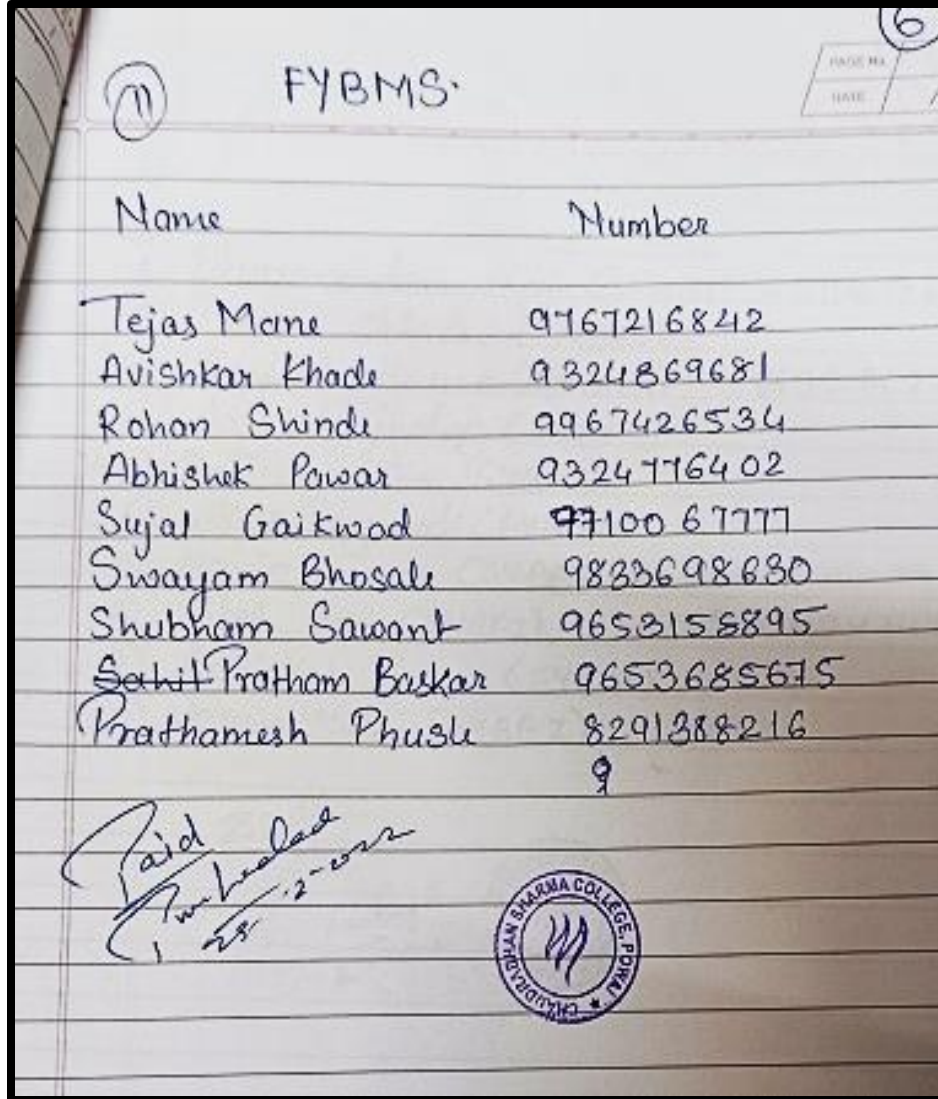 6
PAGE No.
DATE / /
11 FYBMS.
Name Number
Tejas Mane 9767216842
Avishkar Khade 9324869681
Rohan Shinde 9967426534
Abhishek Pawar 9324776402
Sujal Gaikwad 9710067777
Swayam Bhosale 9833698630
Shubham Sawant 9653158895
Sahil Pratham Baskar 9653685675
Prathamesh Phusle 8291388216
9
Paid
-2-2022
CHANDRABHAN SHARMA COLLEGE, POWAI ★